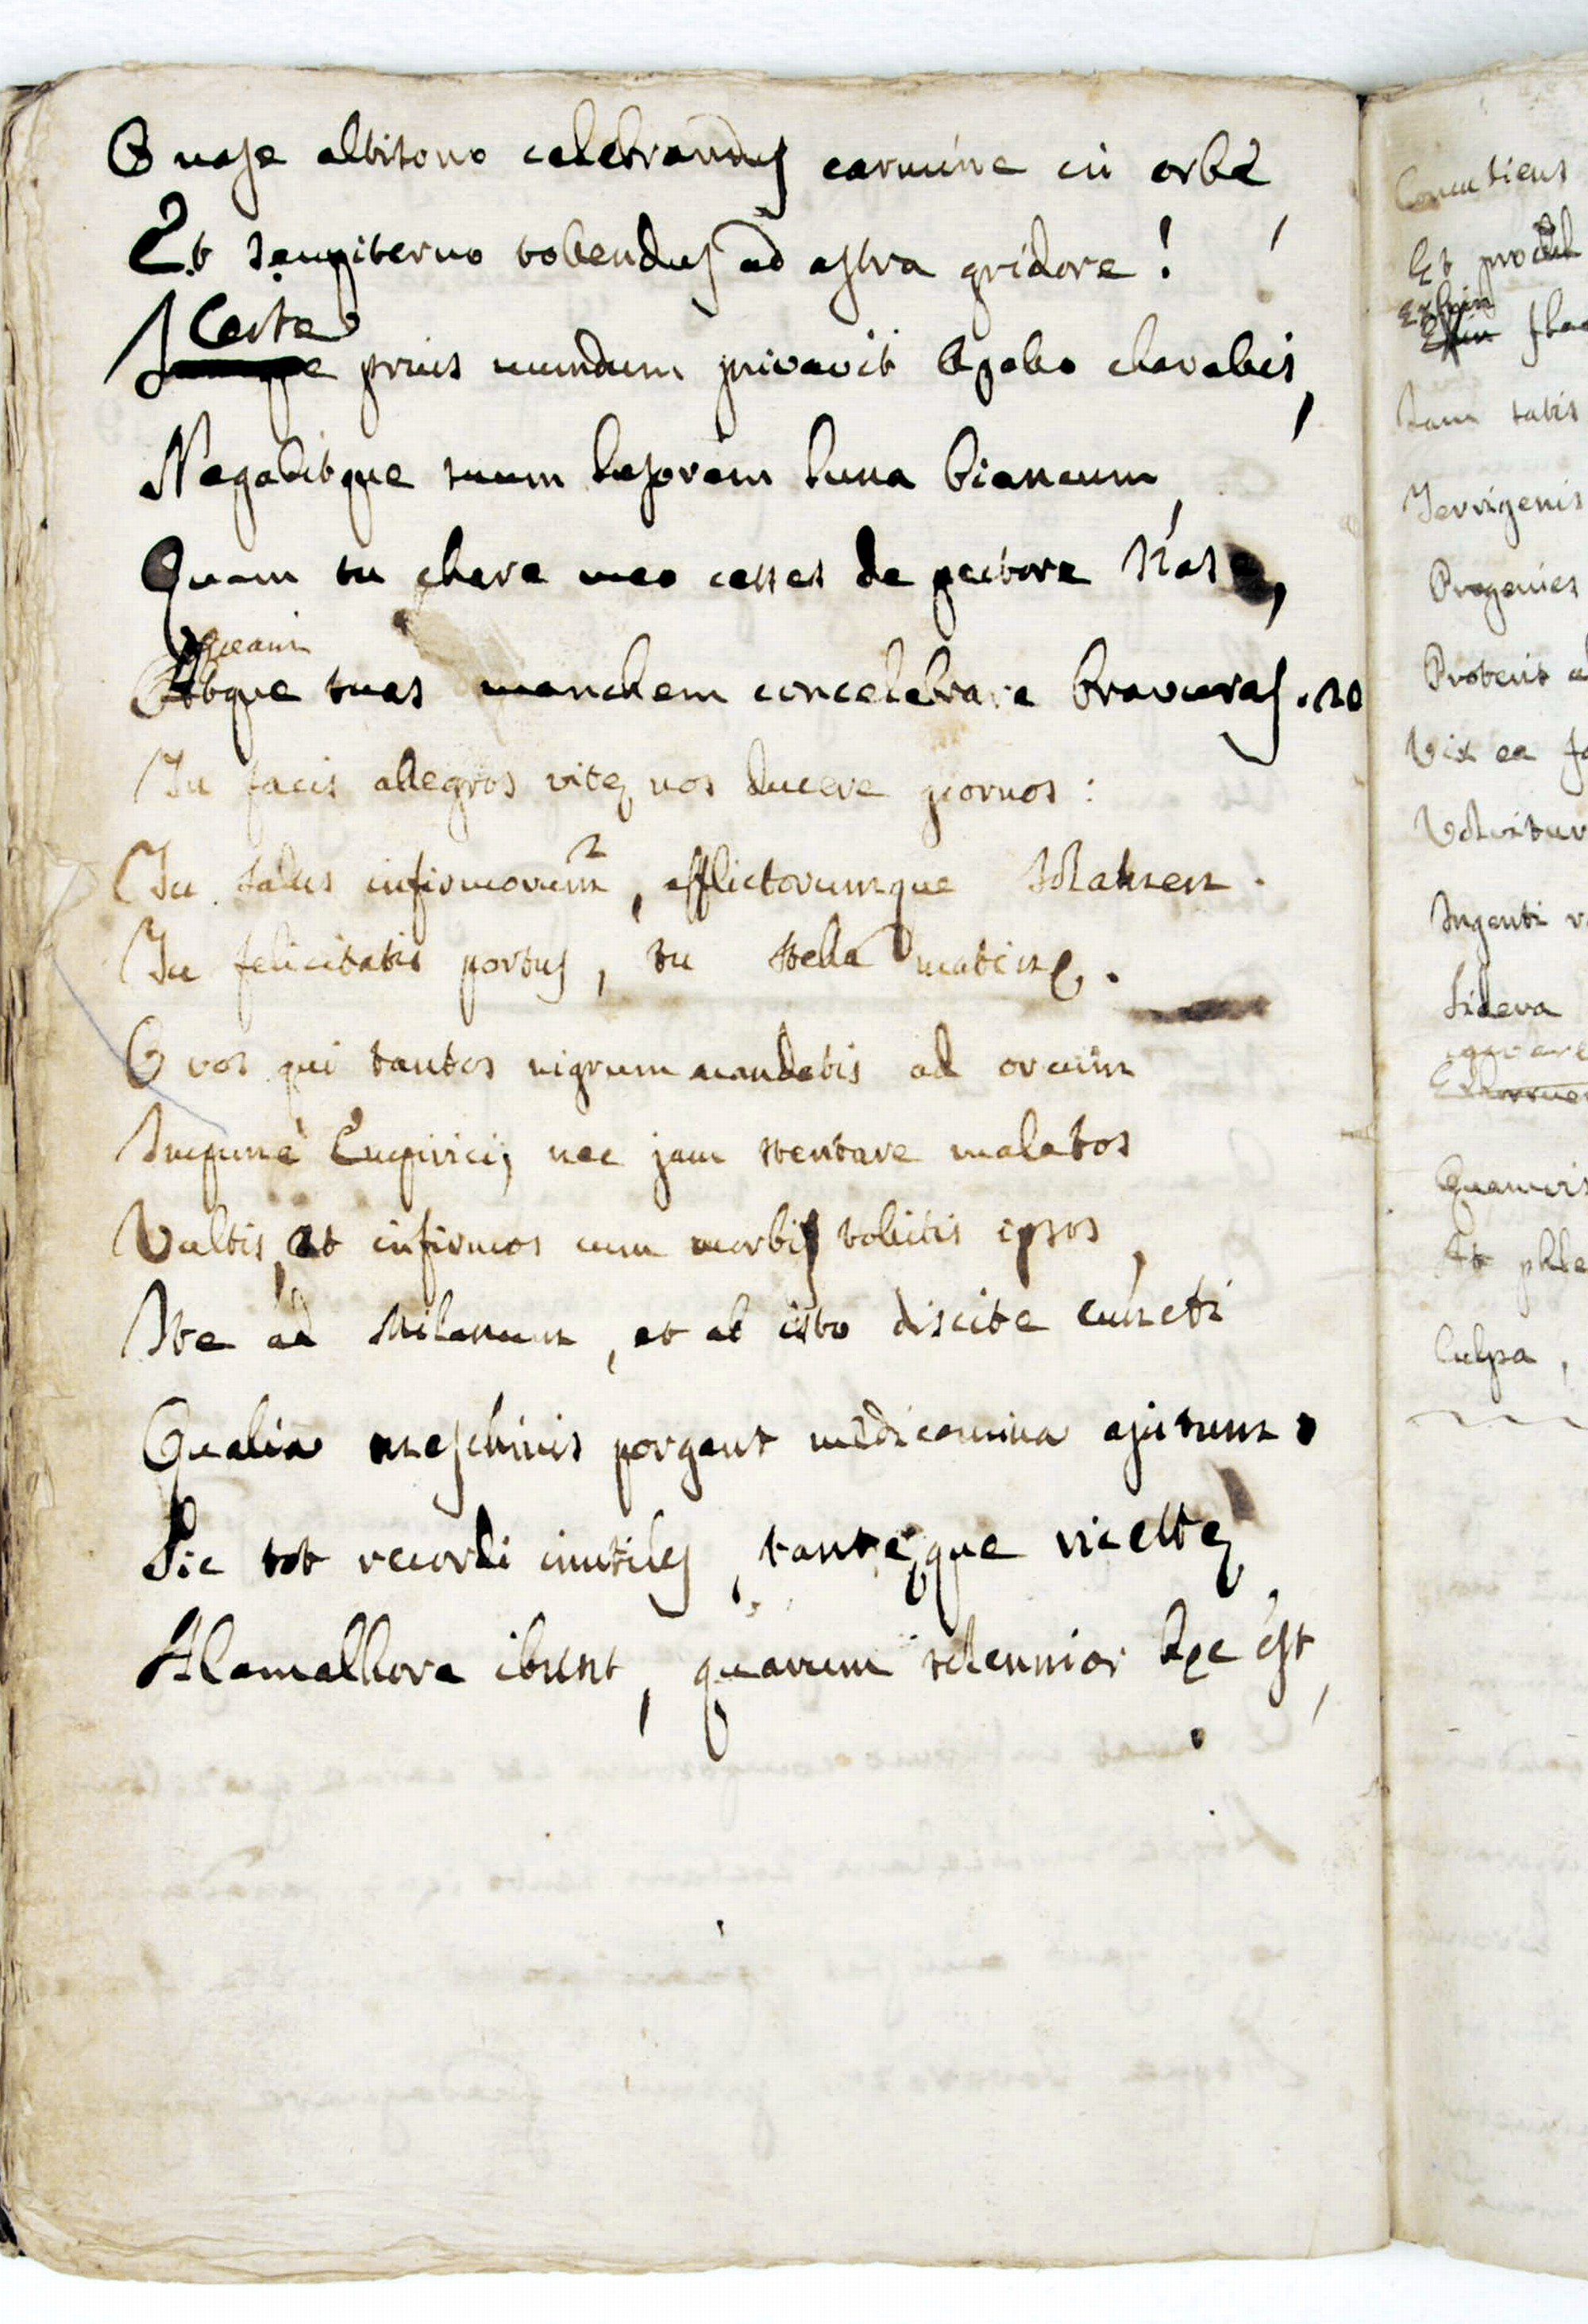 O nase altitono celebrandus carmine in orbe
Et sempiterno tollendus ad astra gridore!
Certe
prius mundum privavit Apollo charalis,
Negabitque suum lusorem luna biancum,
Quam tu chare meo cesses de pectore Nase,
queam
Atque tuas manchem concelebrare bravuras. 20
Tu facis allegros vitę nos ducere giornos:
Tu salus infirmorum, afflictorumque
Tu felicitatis portus, tu stella matinę.
O vos qui tantos nigrum mandatis ad orcum
Impunè Empirici, nec jam stentare malatos
Vultis, at infirmos cum morbis tollitis ipsos,
Ite ad Milanum, et ab isto discite cuncti
Qualia meschinis porgant medicamina ajutum.
Sic tot recordi inutiles, tantęque ricettę
Alamalhora ibunt, quarum est,
Concutiens
Et procul
Exhin
Jam satis
Terrigenis
Progenies
Proterit
Vix ea
Volvitur
Ingenti
Sidera
Quamvis
At
Culpa,